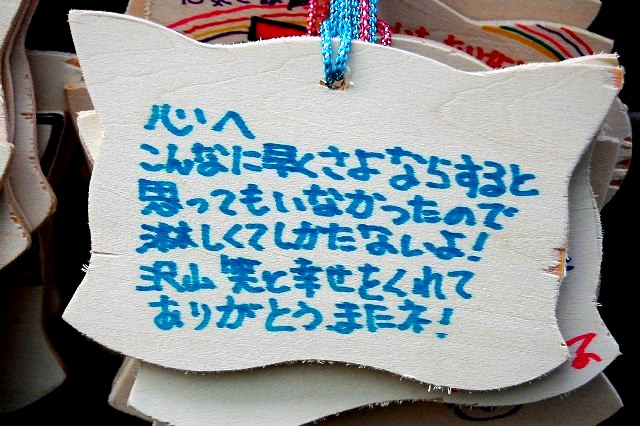 心へ
こんなに早くさよならすると
思ってもいなかったので
淋しくてしかたないよ!
沢山 笑と幸せをくれて
ありがとう、またネ!